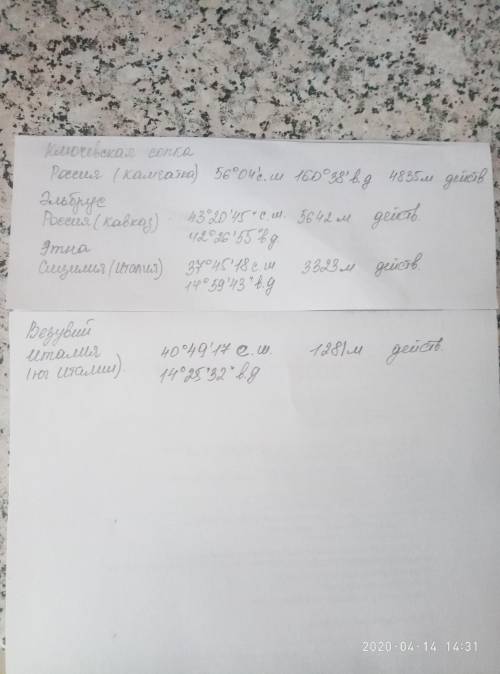 Ключевская сопка
Россия (Камчатка) 56°04'с.ш 160°38'в.д 4835м действ.
Эльбрус
Россия (Кавказ) 43°20'45"с.ш. 5642 м действ.
42°26'55"в.д
Этна
Сицилия (Италия) 37°45'18 с.ш 3323м действ.
14°59'43"в.д
Везувий
Италия 40°49'17 с.ш. 1281м действ.
(юг Италии) 14°25'32"в.д
2020-04-14 14:31